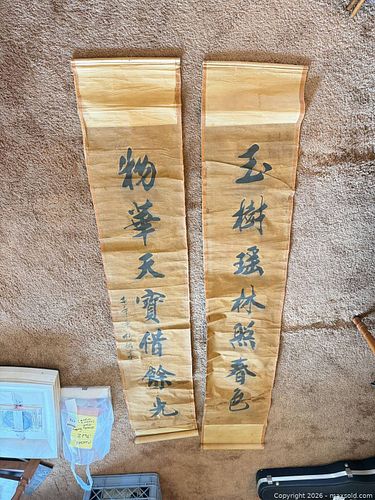 玉樹瑶林照春色
物華天寶借餘光
Copyright © 2026 - maxsold.com